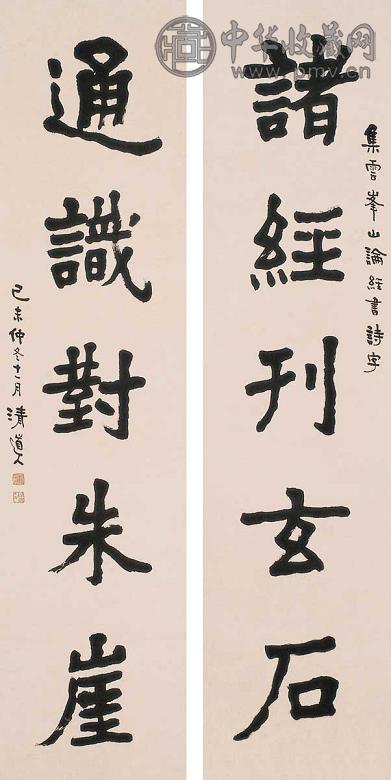 中华收藏网
www.pmv.cn
集雲峯山論經書詩字
諸經刊玄石
通識對朱崖
己未仲冬十一月清道人